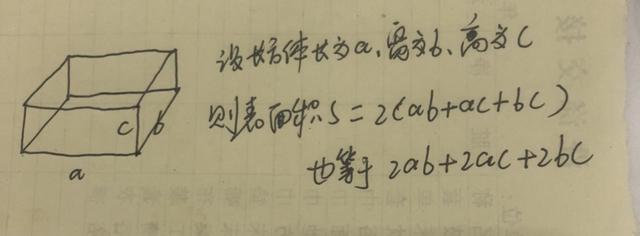 设长方体长为a、宽为b、高为c
则表面积S=2(ab+ac+bc)
也等于 2ab+2ac+2bc
c b
a